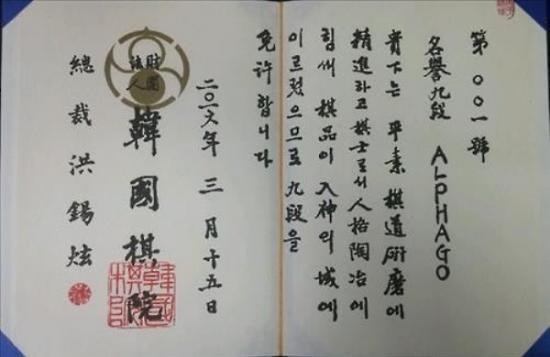 第〇〇一號
名譽九段 ALPHAGO
貴下는 平素 棋道硏磨에
精進하고 棋士로서 人格陶冶에
힘써 棋品이 入神의 域에
이르렀으므로 九段을
免許합니다
二〇一六年 三月 十五日
財團法人
韓國棋院
總裁 洪錫炫